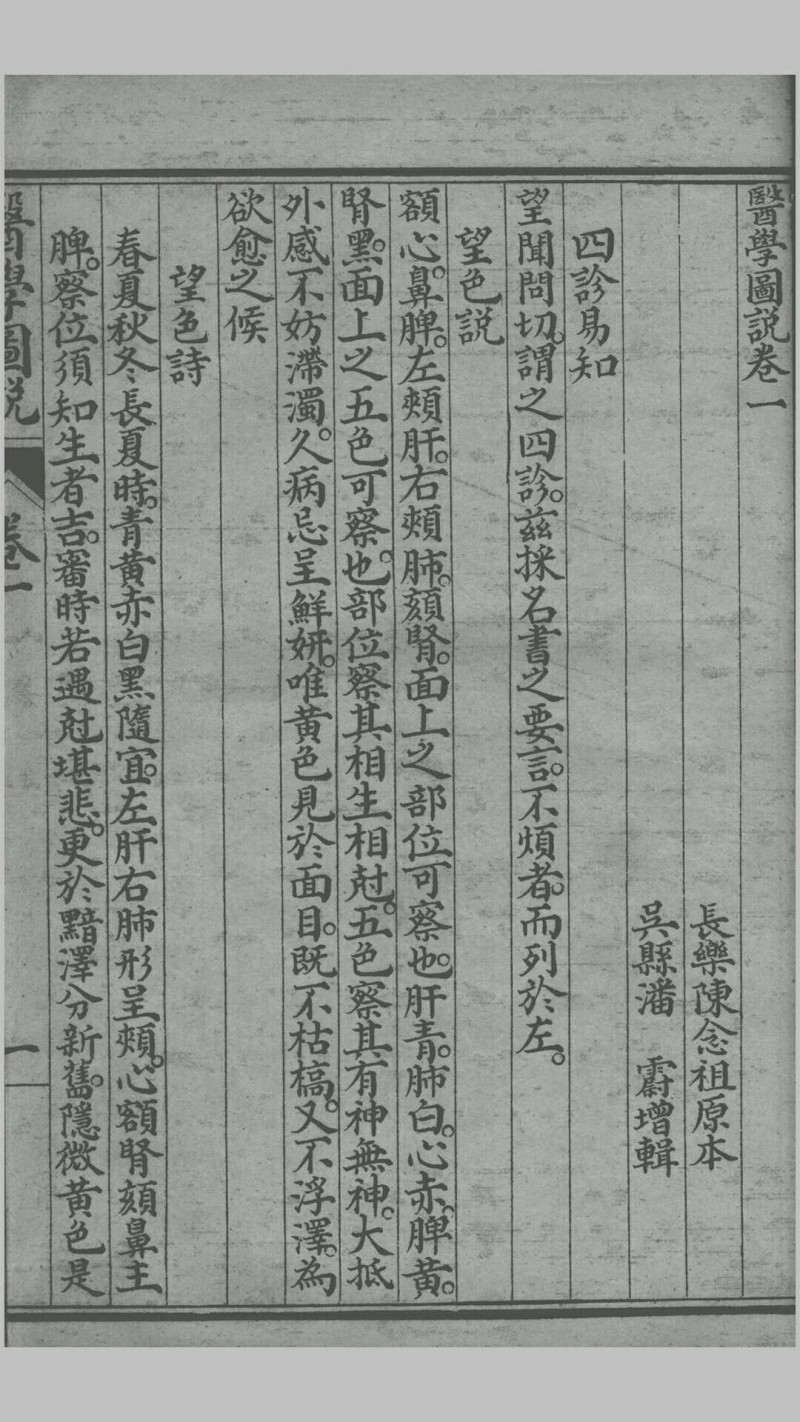 醫學圖説卷一
長樂陳念祖原本
吳縣潘　霨增輯
四診易知
望聞問切。謂之四診。兹採名書之要言。不煩者。而列於左。
望色説
額心。鼻脾。左頰肝。右頰肺。頦腎。面上之部位可察也。肝青。肺白。心赤。脾黃。
腎黑。面上之五色可察。也部位察其相生相尅。五色察其有神無神。大抵
外感不妨滯濁。久病忌呈鮮妍。唯黃色見於面目。既不枯槁。又不浮澤。為
欲愈之候
望色詩
春夏秋冬長夏時。青黃赤白黑隨宜。左肝右肺形呈頰。心額腎頦鼻主
脾。察位須知生者吉。審時若遇尅堪悲。更於黯澤分新舊。隱微黃色是
醫學圖説　卷一　一